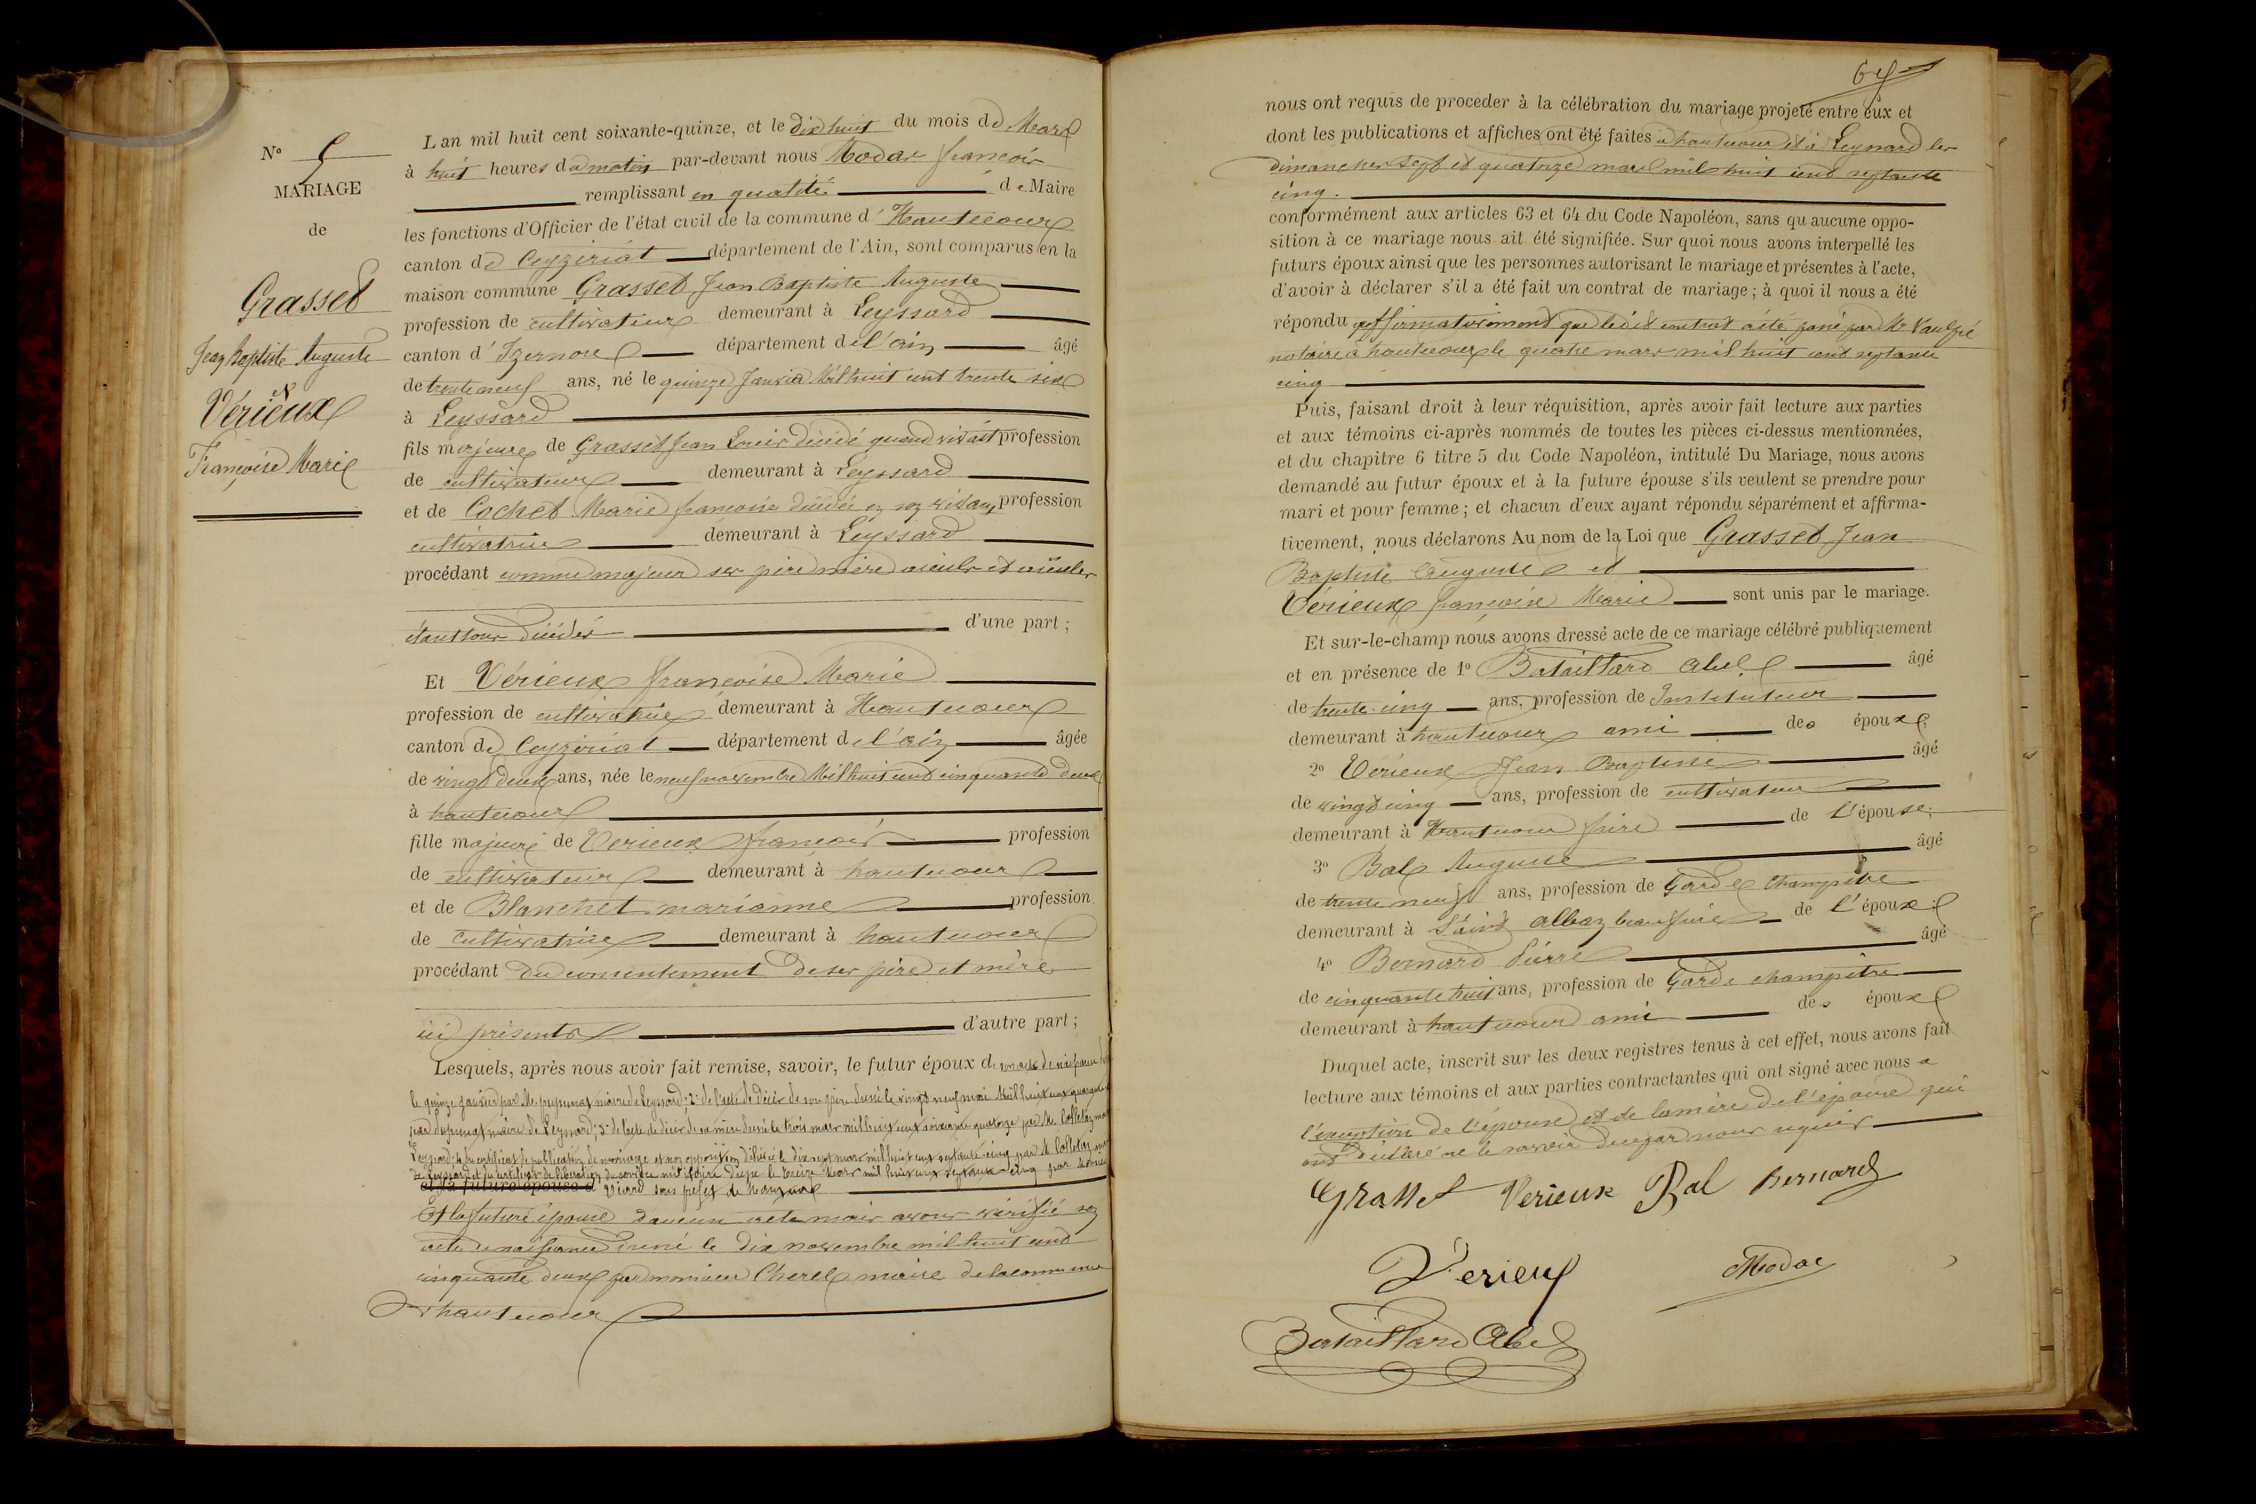 N° 5
MARIAGE
de
Grasset
Jean Baptiste Auguste
et
Vérieux
Françoise Marie
L'an mil huit cent soixante-quinze, et le dix huit du mois de Mars
à huit heures du matin par-devant nous Modas françois
remplissant en qualité de Maire
les fonctions d'Officier de l'état civil de la commune d'Hautecour
canton de Ceyzériat département de l'Ain, sont comparus en la
maison commune Grasset Jean Baptiste Auguste
profession de cultivateur demeurant à Leyssard
canton d'Izernore département de l'ain âgé
de trente neuf ans, né le quinze Janvier Mil huit cent trente six
à Leyssard
fils majeur de Grasset Jean Louis décédé quand vivait profession
de cultivateur demeurant à Leyssard
et de Cochet Marie françoise décédée en son vivant profession
cultivatrice demeurant à Leyssard
procédant comme majeur ses père mère aieuls et aieules
étant tous décédés d'une part ;
Et Vérieux françoise Marie
profession de cultivatrice demeurant à Hautecour
canton de Ceyzériat département de l'ain âgée
de vingt deux ans, née le neuf novembre Mil huit cent cinquante deux
à hautecour
fille majeure de Verieux françois profession
de cultivateur demeurant à hautecour
et de Blanchet marianne profession
de cultivatrice demeurant à hautecour
procédant du consentement de ses père et mère
ici présents d'autre part ;
Lesquels, après nous avoir fait remise, savoir, le futur époux de son acte de naissance
le quinze janvier par Mr maire de Leyssard ; 2° de l'acte de décès de son père dressé le vingt neuf mai Mil huit cent quarante
par maire de Leyssard ; 3° de l'acte de décès de sa mère dressé le trois mars mil huit cent soixante quatorze par M. Colletaz
Leyssard ; 4° du certificat de publication de mariage et non opposition délivré le dix sept mars mil huit cent septante cinq par M Colletaz
de Leyssard et du certificat de libération du service militaire le treize Mars mil huit cent septante cinq par
et la future épouse d sous préfet de Nantua
Et la future épouse d'aucun acte mais avons vérifié son
acte de naissance dressé le dix novembre mil huit cent
cinquante deux par monsieur Cherel maire de la commune
d'hautecour
nous ont requis de procéder à la célébration du mariage projeté entre eux et
dont les publications et affiches ont été faites à hautecour et à Leyssard les
dimanches sept et quatorze mars mil huit cent septante
cinq.
conformément aux articles 63 et 64 du Code Napoléon, sans qu'aucune oppo-
sition à ce mariage nous ait été signifiée. Sur quoi nous avons interpellé les
futurs époux ainsi que les personnes autorisant le mariage et présentes à l'acte,
d'avoir à déclarer s'il a été fait un contrat de mariage ; à quoi il nous a été
répondu affirmativement que ledit contrat a été passé par Mr Vaulpré
notaire à hautecour le quatre mars mil huit cent septante
cinq
Puis, faisant droit à leur réquisition, après avoir fait lecture aux parties
et aux témoins ci-après nommés de toutes les pièces ci-dessus mentionnées,
et du chapitre 6 titre 5 du Code Napoléon, intitulé Du Mariage, nous avons
demandé au futur époux et à la future épouse s'ils veulent se prendre pour
mari et pour femme ; et chacun d'eux ayant répondu séparément et affirma-
tivement, nous déclarons Au nom de la Loi que Grasset Jean
Baptiste Auguste et
Vérieux françoise Marie sont unis par le mariage.
Et sur-le-champ nous avons dressé acte de ce mariage célébré publiquement
et en présence de 1° Bataillard Abel âgé
de trente cinq ans, profession de Instituteur
demeurant à hautecour ami des époux ;
2° Vérieux Jean Baptiste âgé
de vingt cinq ans, profession de cultivateur
demeurant à Hautecour frère de l'épouse ;
3° Bal Auguste âgé
de trente neuf ans, profession de Garde Champêtre
demeurant à Saint alban beau frère de l'époux ;
4° Bernard Pierre âgé
de cinquante huit ans, profession de Garde champêtre
demeurant à hautecour ami des époux
Duquel acte, inscrit sur les deux registres tenus à cet effet, nous avons fait
lecture aux témoins et aux parties contractantes qui ont signé avec nous a
l'exception de l'épouse et de la mère de l'épouse qui
ont déclaré ne le savoir de ce par nous requis
Grasset Verieux Bal Bernard
Verieux Modas
Bataillard Abel